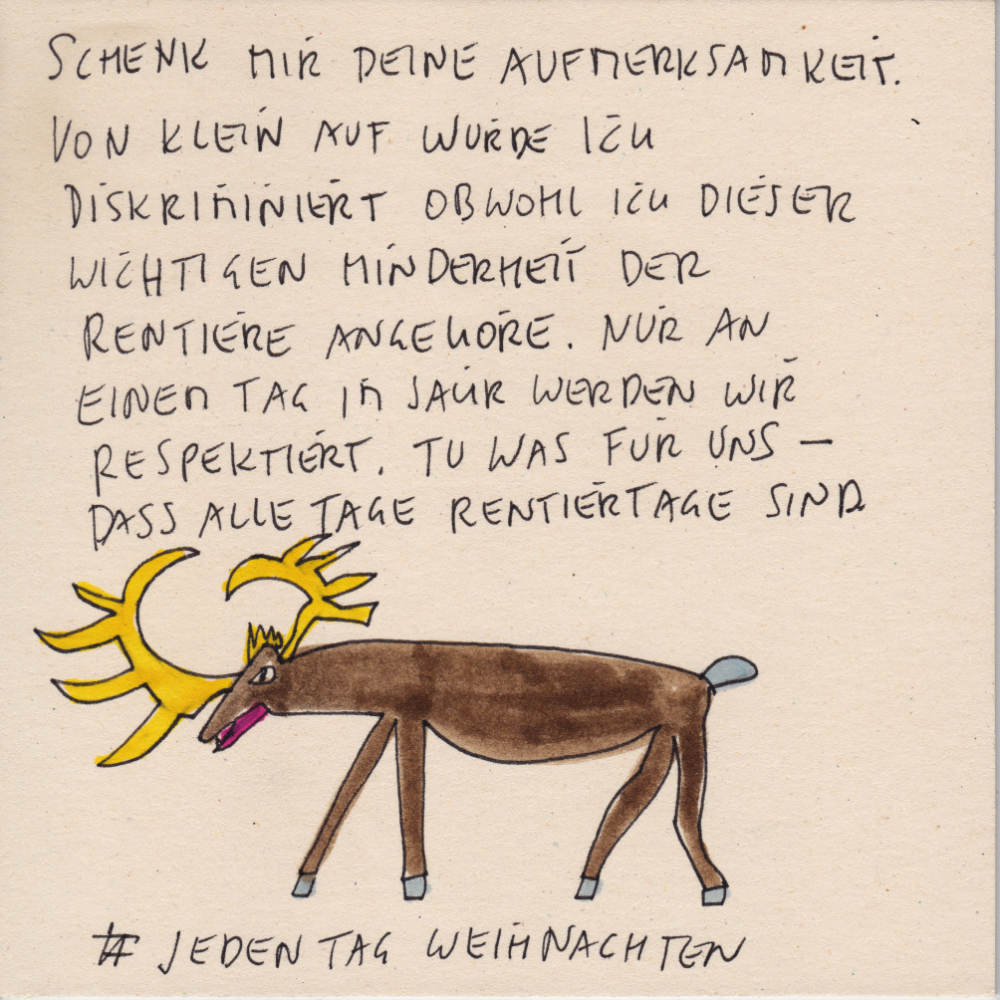 SCHENK MIR DEINE AUFMERKSAMKEIT.
VON KLEIN AUF WURDE ICH
DISKRIMINIERT OBWOHL ICH DIESER
WICHTIGEN MINDERHEIT DER
RENTIERE ANGEHÖRE. NUR AN
EINEM TAG IM JAHR WERDEN WIR
RESPEKTIERT. TU WAS FÜR UNS –
DASS ALLE TAGE RENTIERTAGE SIND
# JEDEN TAG WEIHNACHTEN